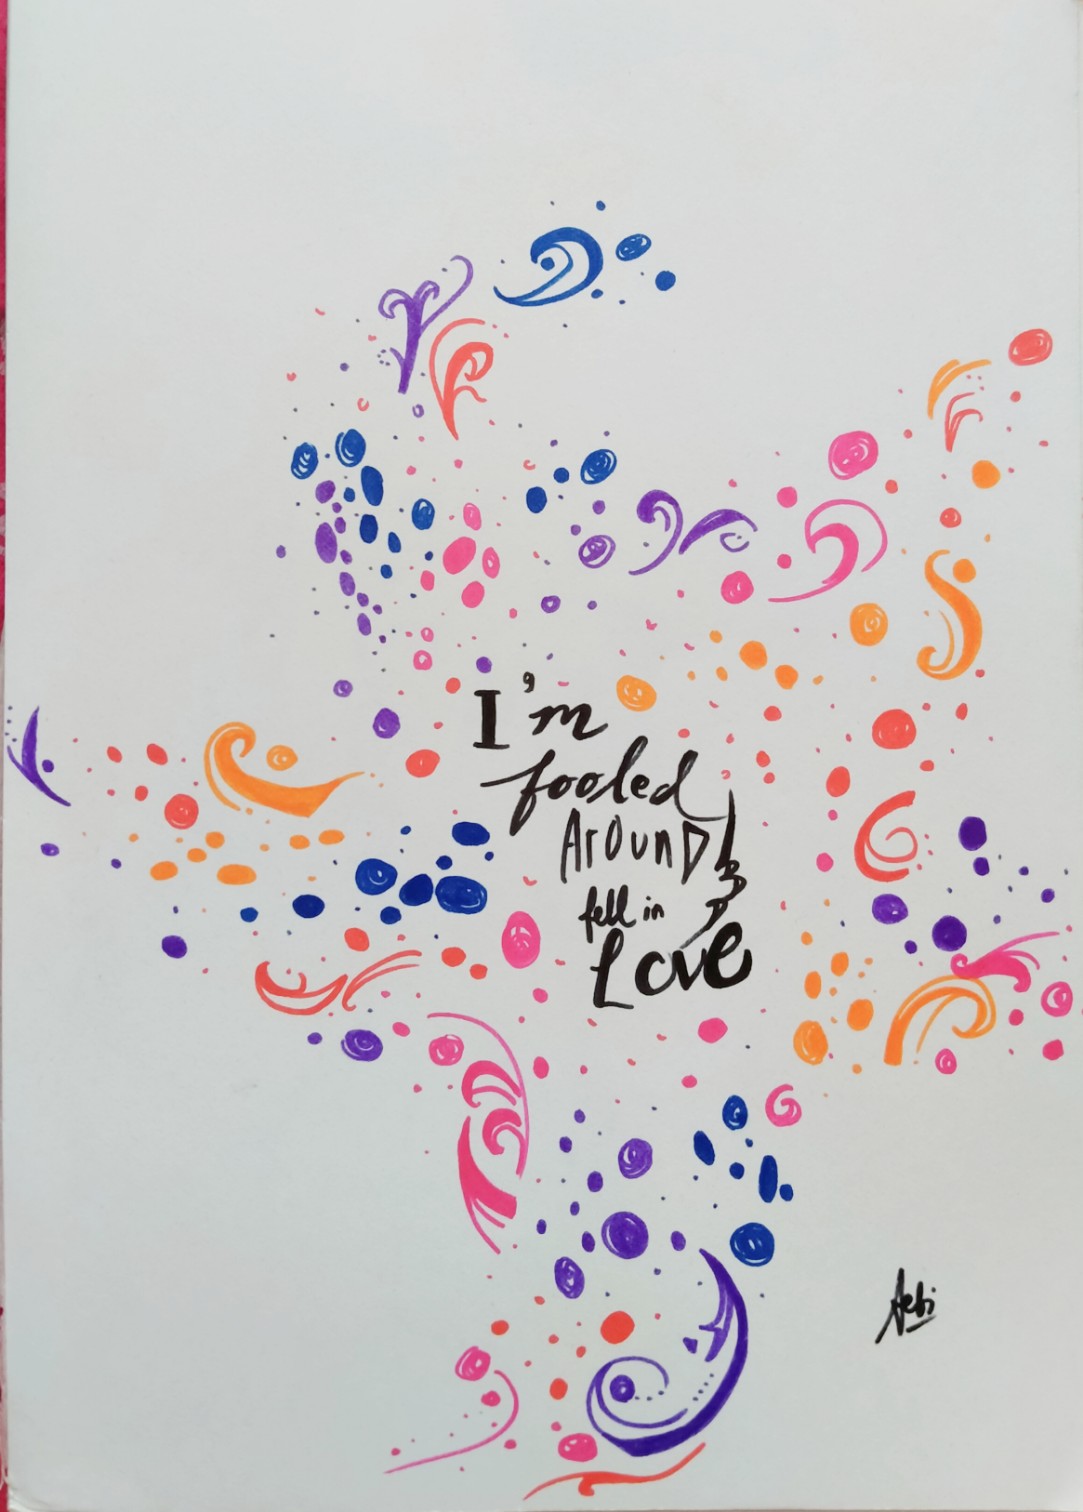 I'm
fooled
Around &
fell in
Love
Aebi